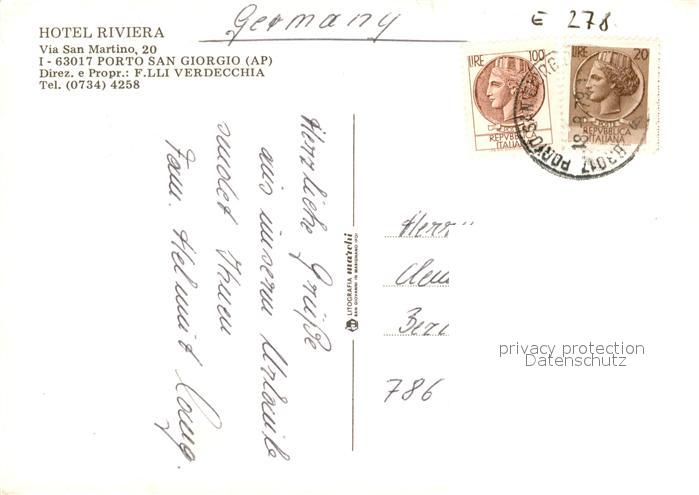 HOTEL RIVIERA
Via San Martino, 20
I - 63017 PORTO SAN GIORGIO (AP)
Direz. e Propr.: F.LLI VERDECCHIA
Tel. (0734) 4258
Germany
E 278
LIRE 100
REPVBBLICA
ITALIANA
LIRE 20
REPVBBLICA
ITALIANA
63017 PORTO SAN GIORGIO
Herzliche Grüße
aus unserm Urlaub
sendet Ihnen
Fam. Helmut
LITOGRAFIA marchi
SAN GIOVANNI IN MARIGNANO (FO)
Herr
786
privacy protection
Datenschutz